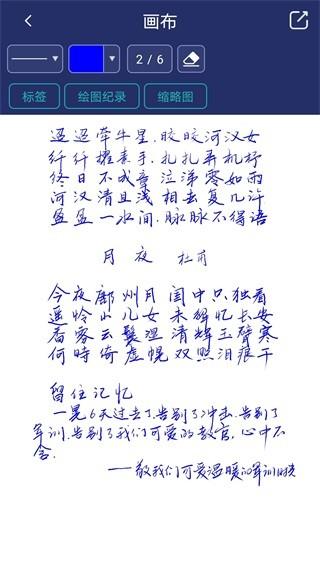 画布
2 / 6
标签 绘图纪录 缩略图
迢迢牵牛星,皎皎河汉女
纤纤擢素手,扎扎弄机杼
终日不成章 泣涕零如雨
河汉清且浅 相去复几许
盈盈一水间,脉脉不得语
月夜 杜甫
今夜鄜州月 闺中只独看
遥怜小儿女 未解忆长安
香雾云鬟湿 清辉玉臂寒
何時倚虚幌 双照泪痕干
留住记忆
一晃6天过去了,告别了冲击,告别了
军训,告别了我们可爱的教官,心中不
舍.
——敬我们可爱温暖的军训时光